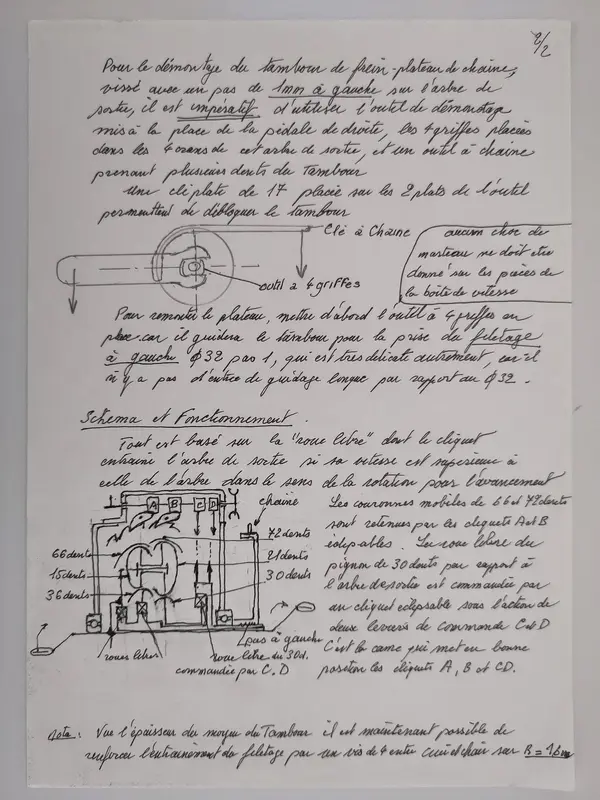 2/2
Pour le démontage du tambour de frein-plateau de chaine,
vissé avec un pas de 1mm à gauche sur l'arbre de
sortie, il est impératif d'utiliser l'outil de démontage
mis à la place de la pédale de droite, les 4 griffes placées
dans les 4 crans de cet arbre de sortie, et un outil à chaine
prenant plusieurs dents du Tambour
Une clé plate de 17 placée sur les 2 plats de l'outil
permettent de débloquer le tambour
Clé à Chaine
outil a 4 griffes
aucun choc de
marteau ne doit etre
donné sur les pièces de
la boite de vitesse
Pour remonter le plateau, mettre d'abord l'outil à 4 griffes en
place car il guidera le tambour pour la prise du filetage
à gauche ϕ32 pas 1, qui est très délicate autrement, car il
n'y a pas d'entrée de guidage longue par rapport au ϕ32.
Schema et Fonctionnement.
Tout est basé sur la "roue libre" dont le cliquet
entraine l'arbre de sortie si sa vitesse est superieure à
celle de l'arbre dans le sens de la rotation pour l'avancement
A B C D
chaine
72 dents
66 dents
21 dents
15 dents
30 dents
36 dents
pas à gauche
roues libres
roue libre du 30d.
commandée par C.D
Les couronnes mobiles de 66 et 72 dents
sont retenues par les cliquets A et B
éclipsables La roue libre du
pignon de 30 dents par rapport à
l'arbre de sortie est commandée par
un cliquet éclipsable sous l'action de
deux leviers de commande C et D
C'est la came qui met en bonne
position les cliquets A, B et CD.
Nota: Vue l'épaisseur du moyeu du Tambour il est maintenant possible de
renforcer l'entrainement du filetage par un vis de 4 entre cuir et chair sur